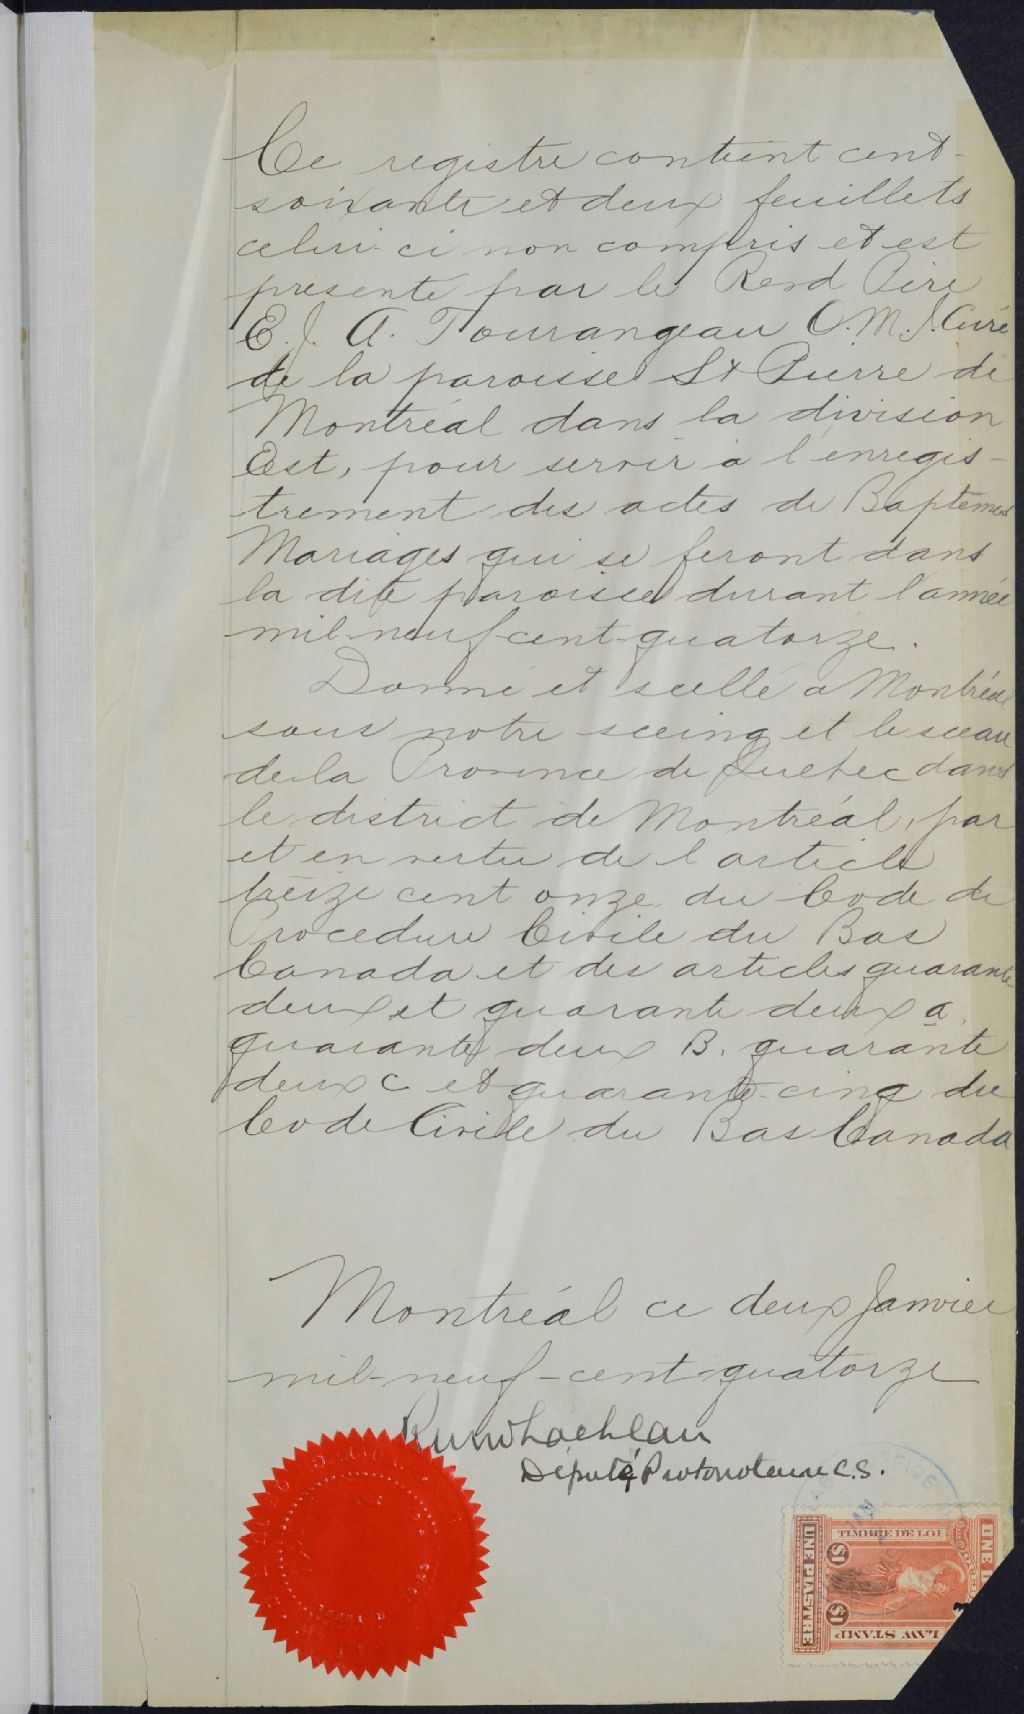 Ce registre contient cent-
soixante et deux feuillets
celui-ci non compris et est
presenté par le Revd Père
E. J. A. Tourangeau O.M.J. Curé
de la paroisse St Pierre de
Montréal dans la division
Est, pour servir à l'enregis-
trement des actes de Baptemes
Mariages qui se feront dans
la dite paroisse durant l'année
mil-neuf-cent-quatorze.
Donné et scellé a Montréal
sous notre sceing et le sceau
de la Province de Quebec dans
le district de Montréal, par
et en vertu de l'article
treize cent onze du Code de
Procedure Civile du Bas
Canada et des articles quarante
deux et quarante deux a
quarante deux B. quarante
deux c et quarante-cinq du
Code Civile du Bas Canada
Montréal ce deux Janvier
mil-neuf-cent-quatorze
Député Protonotaire C.S.
TIMBRE DE LOI
UNE PIASTRE
$1
$1
LAW STAMP
ONE
JAN